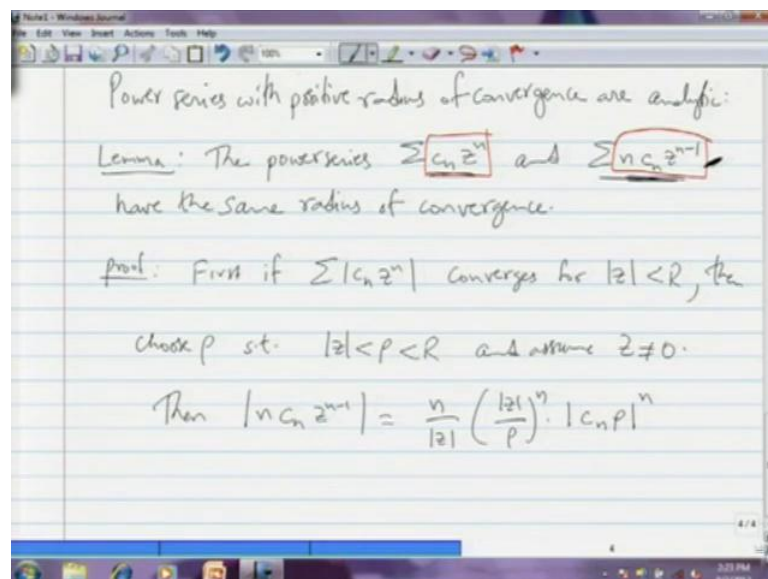 Note1 - Windows Journal
File Edit View Insert Actions Tools Help
100%
Power series with positive radius of convergence are analytic:
Lemma: The powerseries Σ cₙ zⁿ and Σ n cₙ zⁿ⁻¹
have the same radius of convergence.
proof: First if Σ |cₙ zⁿ| converges for |z| < R, then
choose ρ s.t. |z| < ρ < R and assume z ≠ 0.
Then |n cₙ zⁿ⁻¹| = n/|z| (|z|/ρ)ⁿ · |cₙ ρ|ⁿ
4/4
4
3:23 PM